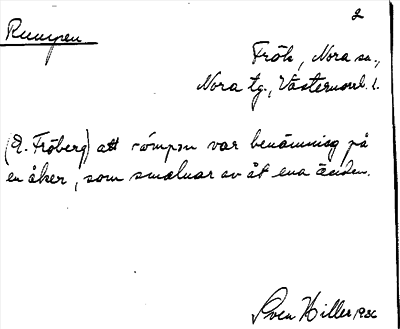 2
Rumpen
Frök, Nora sn.,
Nora tg., Västernorrl. l.
(E. Fröberg) att rómpɘn var benämning på
en åker, som smalnar av åt ena änden.
Sven Hiller 1936